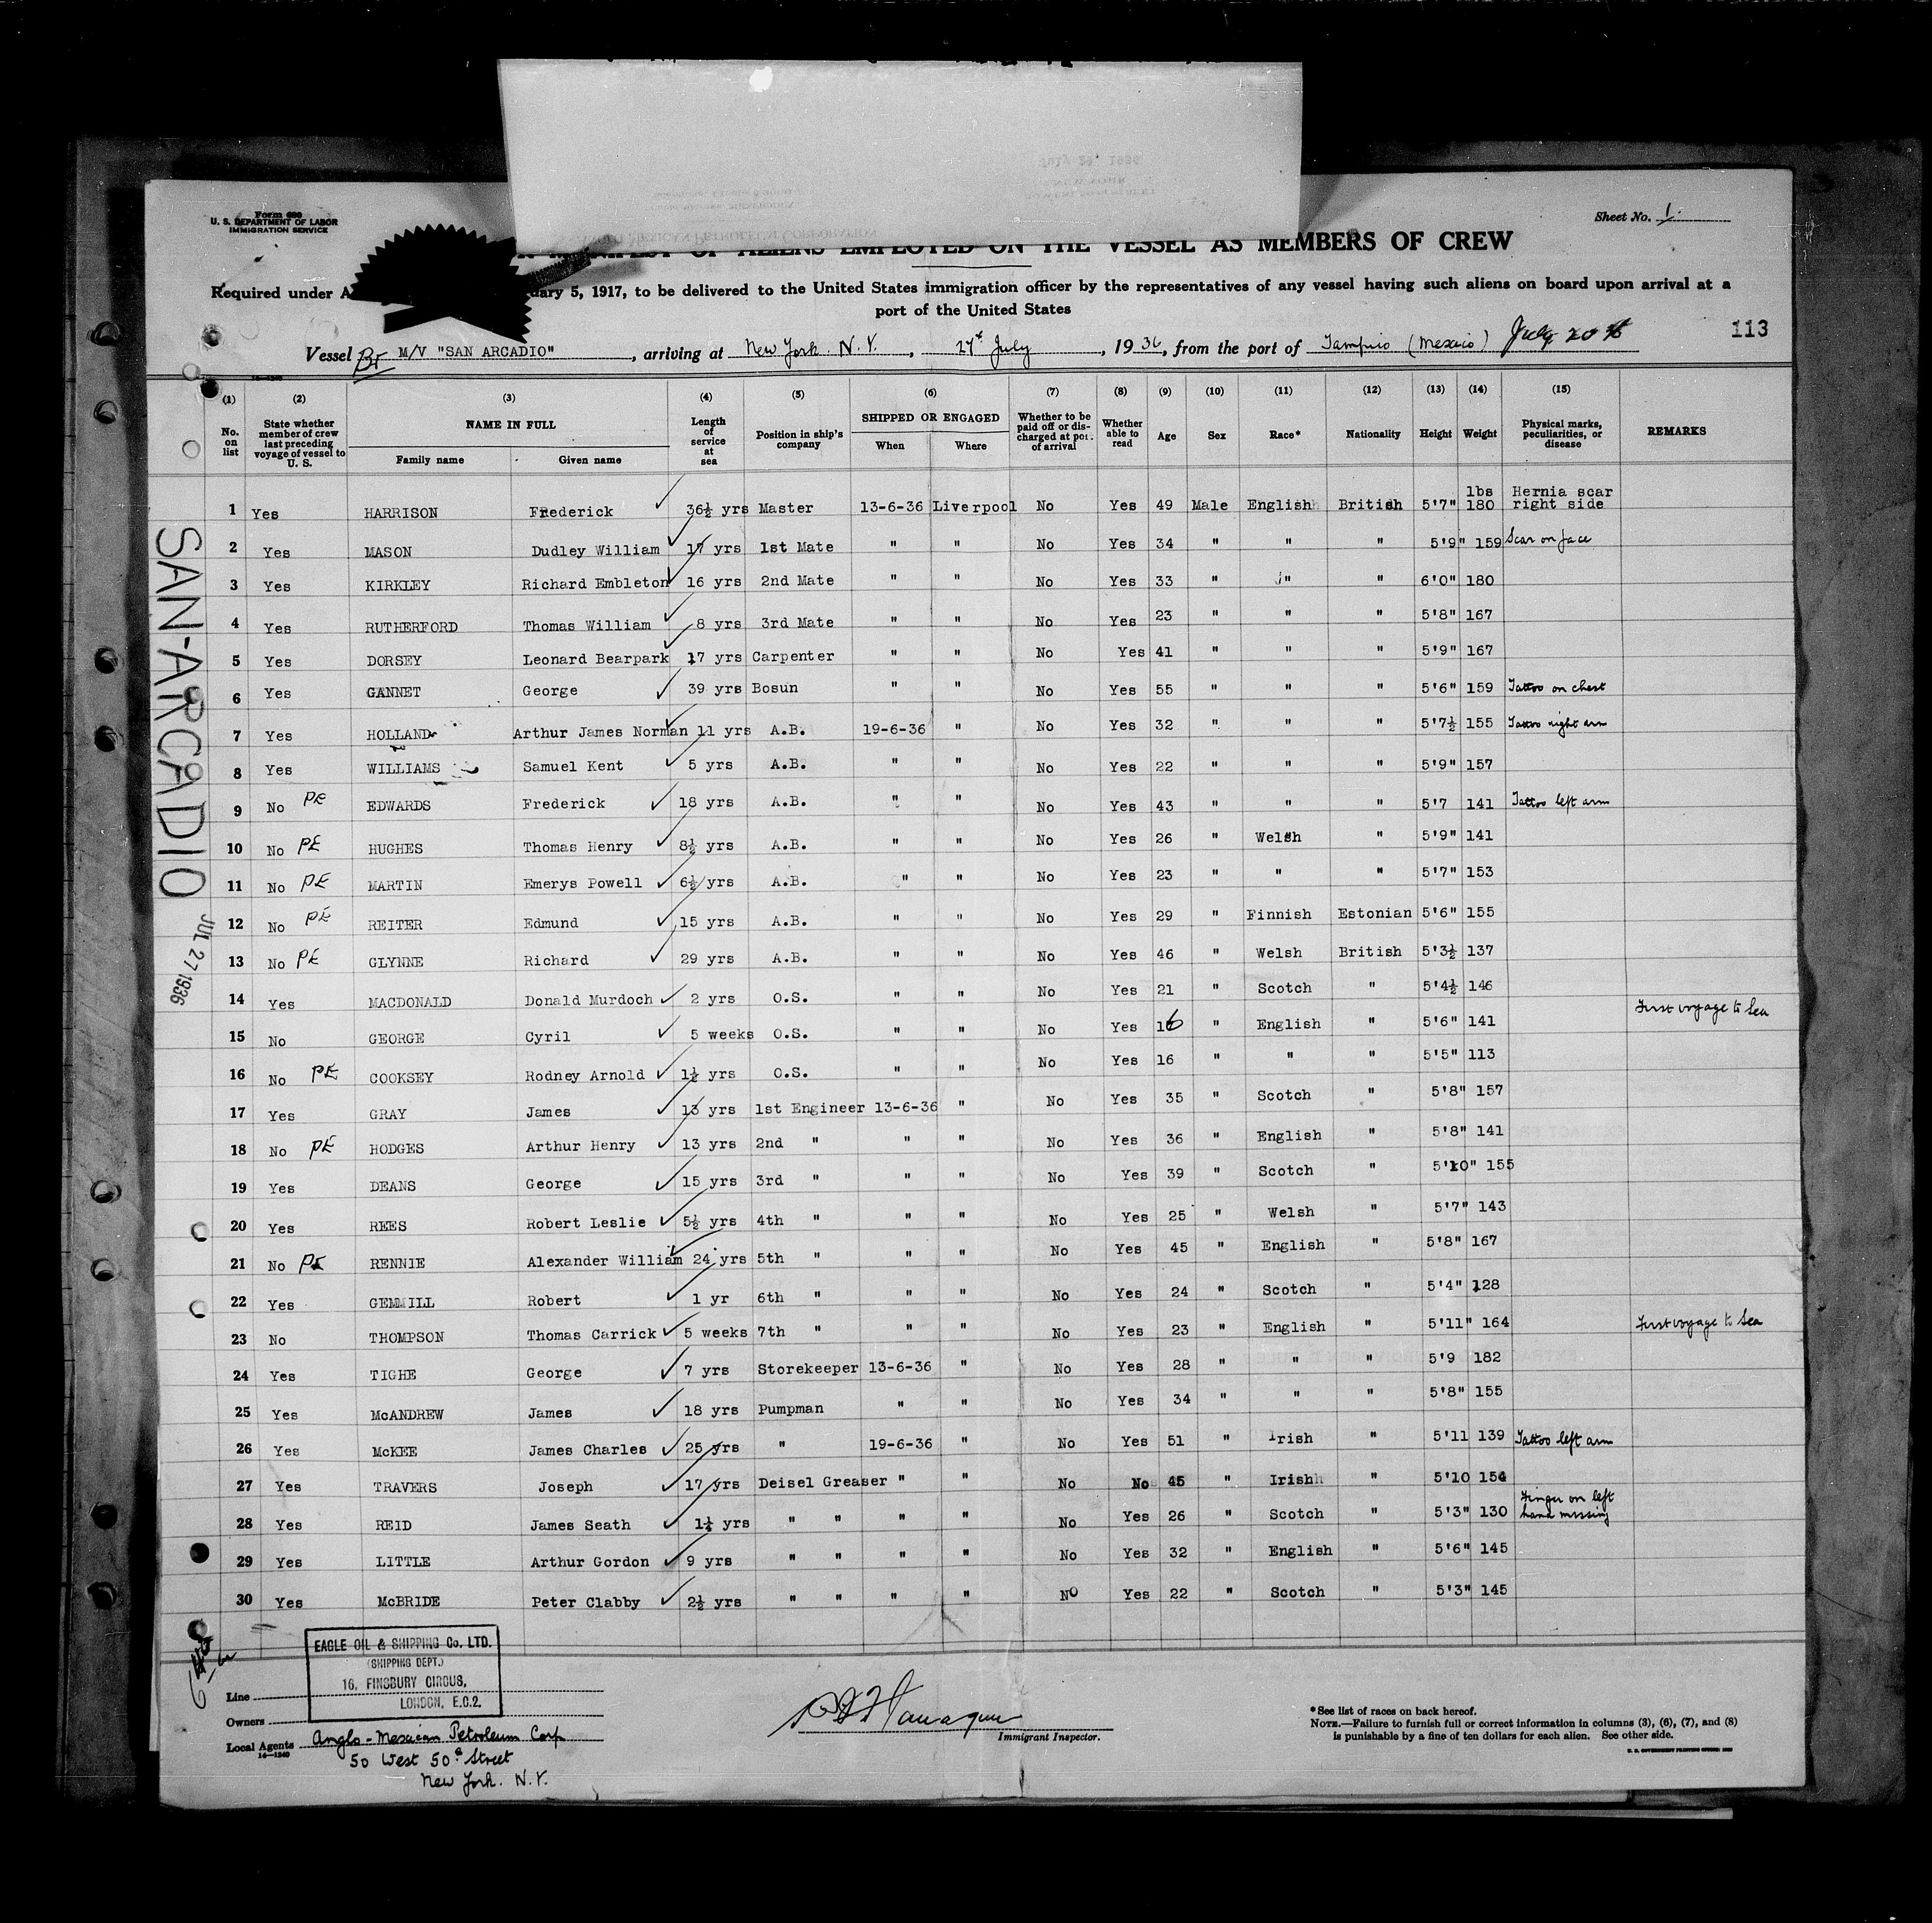 Form 680
U. S. DEPARTMENT OF LABOR
IMMIGRATION SERVICE
Sheet No. 1.
MANIFEST OF ALIENS EMPLOYED ON THE VESSEL AS MEMBERS OF CREW
Required under A uary 5, 1917, to be delivered to the United States immigration officer by the representatives of any vessel having such aliens on board upon arrival at a
port of the United States
113
Vessel Br M/V "SAN ARCADIO", arriving at New York. N.Y., 27th July, 1936, from the port of Tampico (Mexico) July 20th
(1) (2) (3) (4) (5) (6) (7) (8) (9) (10) (11) (12) (13) (14) (15)
No. on list State whether member of crew last preceding voyage of vessel to U. S. NAME IN FULL Family name Given name Length of service at sea Position in ship's company SHIPPED OR ENGAGED When Where Whether to be paid off or discharged at port of arrival Whether able to read Age Sex Race* Nationality Height Weight Physical marks, peculiarities, or disease REMARKS
1 Yes HARRISON Frederick 36½ yrs Master 13-6-36 Liverpool No Yes 49 Male English British 5'7" lbs 180 Hernia scar right side
2 Yes MASON Dudley William 17 yrs 1st Mate " " No Yes 34 " " " 5'9" 159 Scar on face
3 Yes KIRKLEY Richard Embleton 16 yrs 2nd Mate " " No Yes 33 " " " 6'0" 180
4 Yes RUTHERFORD Thomas William 8 yrs 3rd Mate " " No Yes 23 " " " 5'8" 167
5 Yes DORSEY Leonard Bearpark 17 yrs Carpenter " " No Yes 41 " " " 5'9" 167
6 Yes GANNET George 39 yrs Bosun " " No Yes 55 " " " 5'6" 159 Tattoo on chest
7 Yes HOLLAND Arthur James Norman 11 yrs A.B. 19-6-36 " No Yes 32 " " " 5'7½ 155 Tattoo right arm
8 Yes WILLIAMS Samuel Kent 5 yrs A.B. " " No Yes 22 " " " 5'9" 157
9 No PE EDWARDS Frederick 18 yrs A.B. " " No Yes 43 " " " 5'7 141 Tattoo left arm
10 No PE HUGHES Thomas Henry 8½ yrs A.B. " " No Yes 26 " Welsh " 5'9" 141
11 No PE MARTIN Emerys Powell 6½ yrs A.B. " " No Yes 23 " " " 5'7" 153
12 No PE REITER Edmund 15 yrs A.B. " " No Yes 29 " Finnish Estonian 5'6" 155
13 No PE GLYNNE Richard 29 yrs A.B. " " No Yes 46 " Welsh British 5'3½ 137
14 Yes MACDONALD Donald Murdoch 2 yrs O.S. " " No Yes 21 " Scotch " 5'4½ 146
15 No GEORGE Cyril 5 weeks O.S. " " No Yes 16 " English " 5'6" 141 First voyage to Sea
16 No PE COOKSEY Rodney Arnold 1½ yrs O.S. " " No Yes 16 " " " 5'5" 113
17 Yes GRAY James 13 yrs 1st Engineer 13-6-36 " No Yes 35 " Scotch " 5'8" 157
18 No PE HODGES Arthur Henry 13 yrs 2nd " " " No Yes 36 " English " 5'8" 141
19 Yes DEANS George 15 yrs 3rd " " " No Yes 39 " Scotch " 5'10" 155
20 Yes REES Robert Leslie 5½ yrs 4th " " " No Yes 25 " Welsh " 5'7" 143
21 No PE RENNIE Alexander William 24 yrs 5th " " " No Yes 45 " English " 5'8" 167
22 Yes GEMMILL Robert 1 yr 6th " " " No Yes 24 " Scotch " 5'4" 128
23 No THOMPSON Thomas Carrick 5 weeks 7th " " " No Yes 23 " English " 5'11" 164 First voyage to Sea
24 Yes TIGHE George 7 yrs Storekeeper 13-6-36 " No Yes 28 " " " 5'9 182
25 Yes McANDREW James 18 yrs Pumpman " " No Yes 34 " " " 5'8" 155
26 Yes McKEE James Charles 25 yrs " 19-6-36 " No Yes 51 " Irish " 5'11 139 Tattoo left arm
27 Yes TRAVERS Joseph 17 yrs Deisel Greaser " " No No 45 " Irish " 5'10 154
28 Yes REID James Seath 1¼ yrs " " " " No Yes 26 " Scotch " 5'3" 130 Finger on left hand missing
29 Yes LITTLE Arthur Gordon 9 yrs " " " " No Yes 32 " English " 5'6" 145
30 Yes McBRIDE Peter Clabby 2½ yrs " " " " No Yes 22 " Scotch " 5'3" 145
SAN-ARCADIO
JUL 27 1936
EAGLE OIL & SHIPPING Co. LTD.
(SHIPPING DEPT.)
16, FINSBURY CIRCUS,
LONDON, E.C.2.
Line
Owners
Local Agents Anglo-Mexican Petroleum Corp
50 West 50th Street
New York. N.Y.
14—1240
Immigrant Inspector.
*See list of races on back hereof.
NOTE.—Failure to furnish full or correct information in columns (3), (6), (7), and (8)
is punishable by a fine of ten dollars for each alien. See other side.